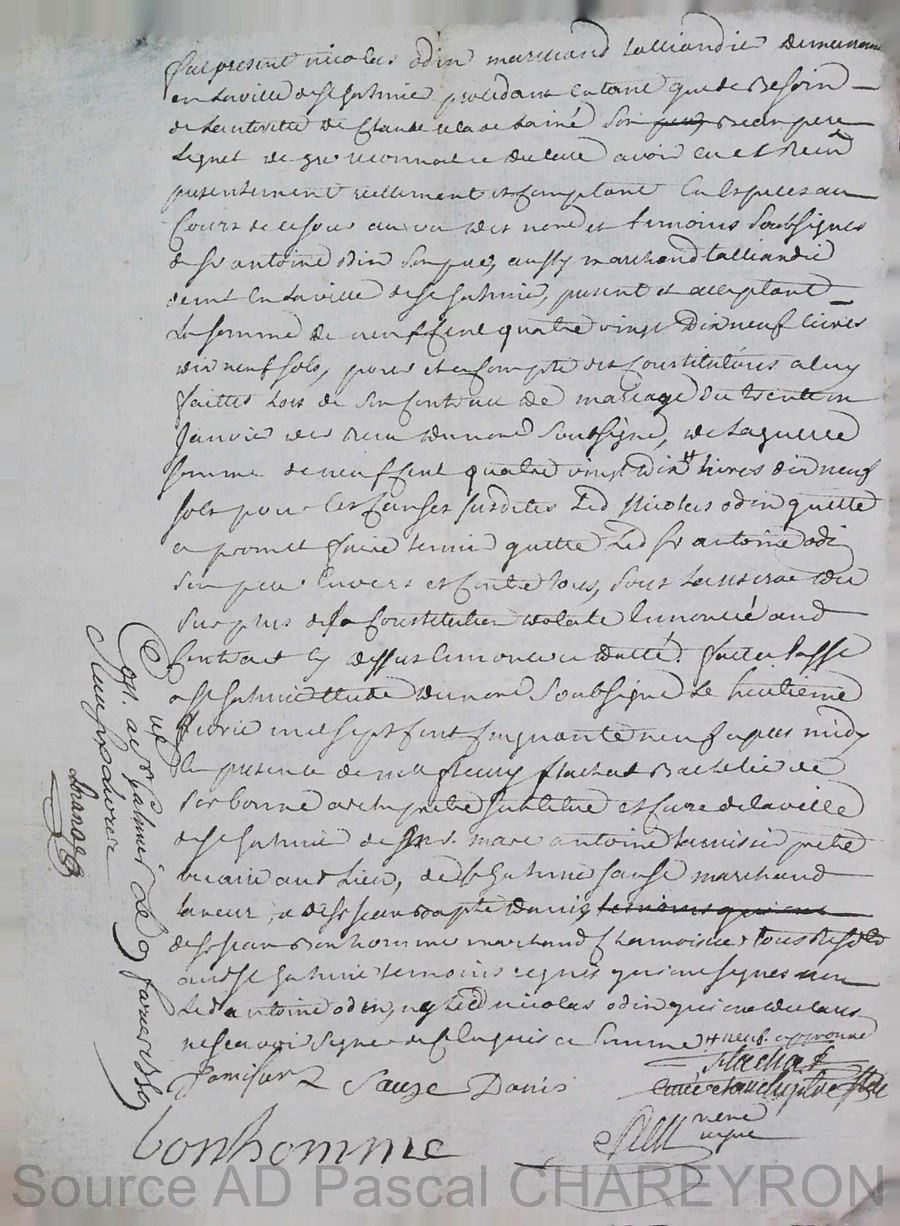 fut présent nicolas odin marchand talliandié demeurant
en la ville de st galmie procédant en tant que de besoin
de lauthorité de Claude son beau pere
lequel de gré reconnoit avoir eu et receu
presentement reellement et comptant en especes au
cours de ce jour au vu des nore et temoins soubsignes
de sr antoine odin son pere, aussy marchand talliandié
demt en la ville de st galmie, present et acceptant
la somme de neuf cent quatre vingt dix neuf livres
dix neuf sols, pour et a compte des constitutions a luy
faittes lors de son contrat de mariage du trente un
janvie der receu du nore soubsigné, de laquelle
somme de neuf cent quatre vingt dix # livres dix neuf
sols pour les causes susdites led nicolas odin quitte
et promet faire tenir quitte led sr antoine odin
son pere envers et contre tous, sous la reserve du
surplus de la constitution enoncée aud
contract cy dessus enoncé et datté. fait et passé
a st galmie étude du nore soubsigné le huitième
fevrie mil sept cent cinquante neuf apres midy
en presence de me fleury flachat bachelié de
sorbonne archiprêtre et curé de la ville
de st galmie de mre marc antoine tamisié prêtre
vicaire aud lieu, de sauze marchand
taneur, de sr jean bapte danis
de sr jean bonhomme marchand chamoiseur tous residt
aud st galmie temoins requis qui ont signes non
led antoine odin, ny led nicolas odin qui ont déclaré
ne scavoir signer de ce enquis et sommé # neuf approuvé
flachat
tamisier Sauze Danis
curé et archiprêtre de st g
bonhomme
nore
royal
Con. a st galmier le 9 favrier 1759